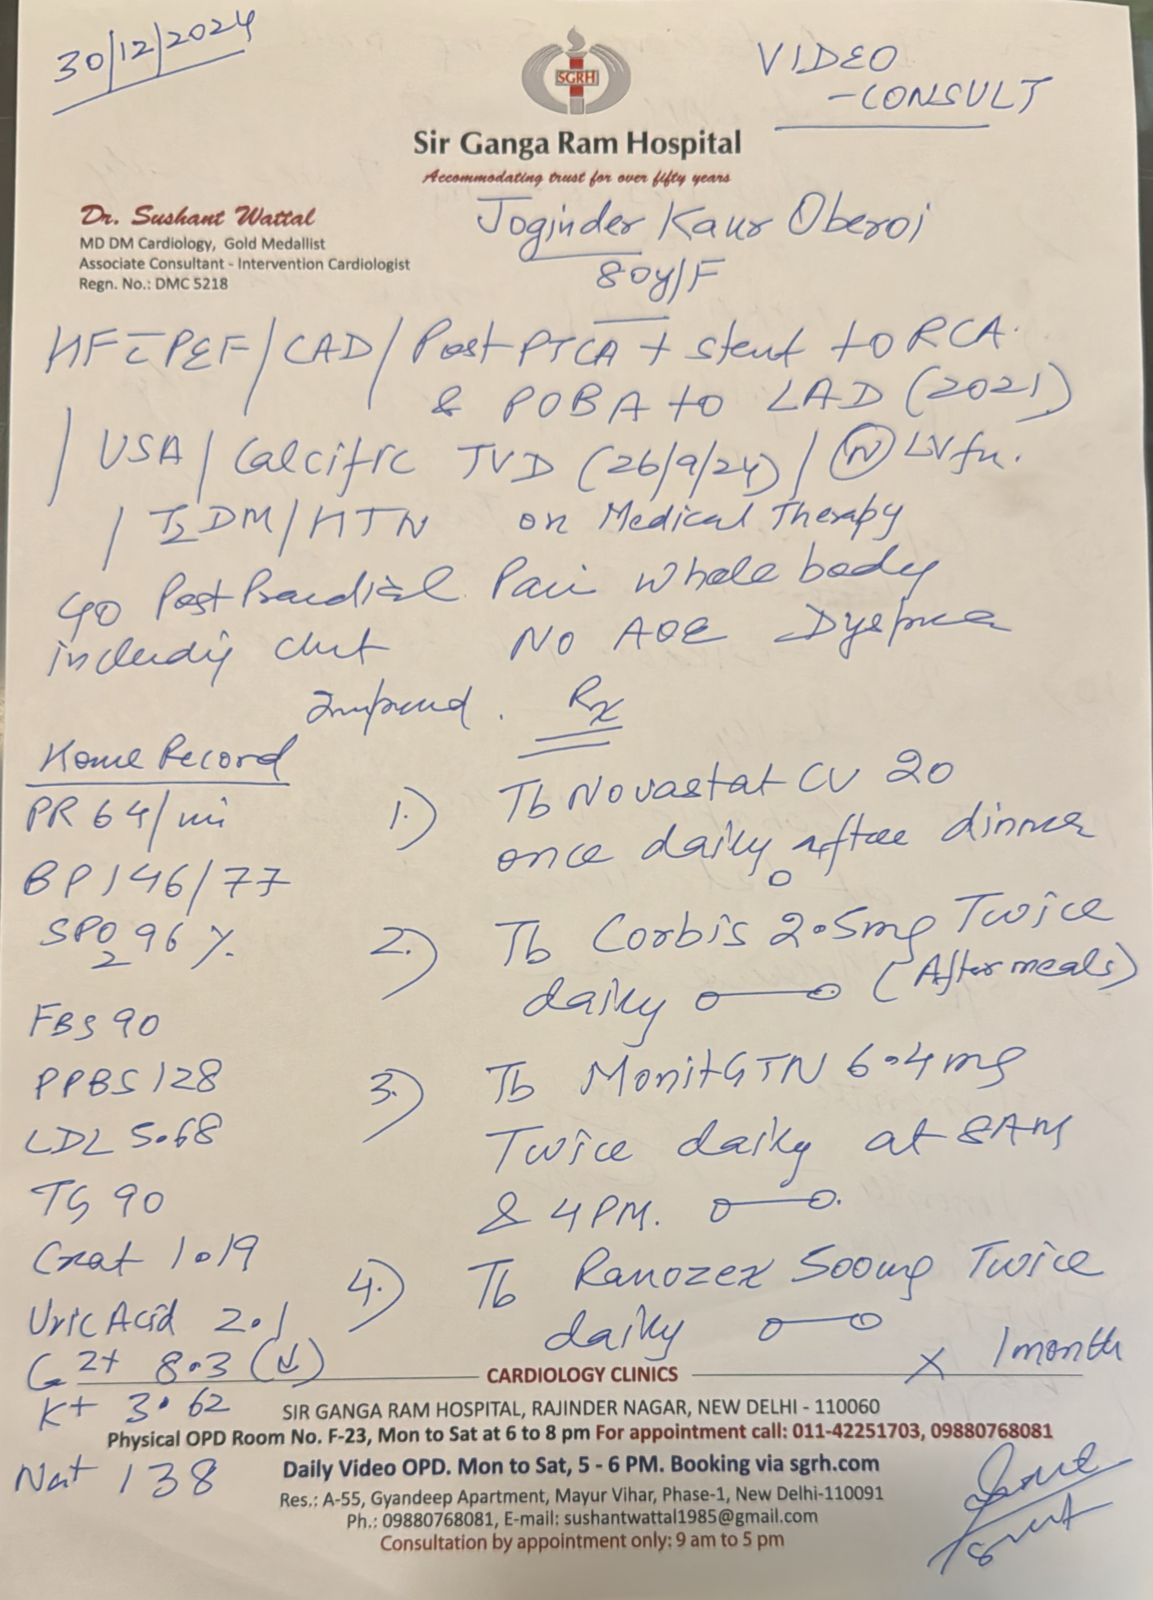 30/12/2024
VIDEO
-CONSULT
SGRH
Sir Ganga Ram Hospital
Accommodating trust for over fifty years
Dr. Sushant Wattal
MD DM Cardiology, Gold Medallist
Associate Consultant - Intervention Cardiologist
Regn. No.: DMC 5218
Joginder Kaur Oberoi
80y/F
HF c̄ PEF/CAD/Post PTCA + stent to RCA
& POBA to LAD (2021)
/ USA/Calcific TVD (26/9/24)/ (N) LV fn.
/ T2DM/HTN on Medical Therapy
c/o Post Prandial Pain whole body
including chest NO AOE Dyspnea
Improved. Rx
Home Record
PR 64/mi
BP 146/77
SPO2 96 %.
FBS 90
PPBS 128
LDL 5.68
TG 90
Creat 1.19
Uric Acid 2.1
Ca2+ 8.3 (↓)
K+ 3.62
Na+ 138
1.) Tb Novastat CV 20
once daily after dinner
2.) Tb Corbis 2.5mg Twice
daily (After meals)
3.) Tb Monit GTN 6.4mg
Twice daily at 8AM
& 4PM.
4.) Tb Ranozex 500mg Twice
daily
x 1 month
CARDIOLOGY CLINICS
SIR GANGA RAM HOSPITAL, RAJINDER NAGAR, NEW DELHI - 110060
Physical OPD Room No. F-23, Mon to Sat at 6 to 8 pm For appointment call: 011-42251703, 09880768081
Daily Video OPD. Mon to Sat, 5 - 6 PM. Booking via sgrh.com
Res.: A-55, Gyandeep Apartment, Mayur Vihar, Phase-1, New Delhi-110091
Ph.: 09880768081, E-mail: sushantwattal1985@gmail.com
Consultation by appointment only: 9 am to 5 pm